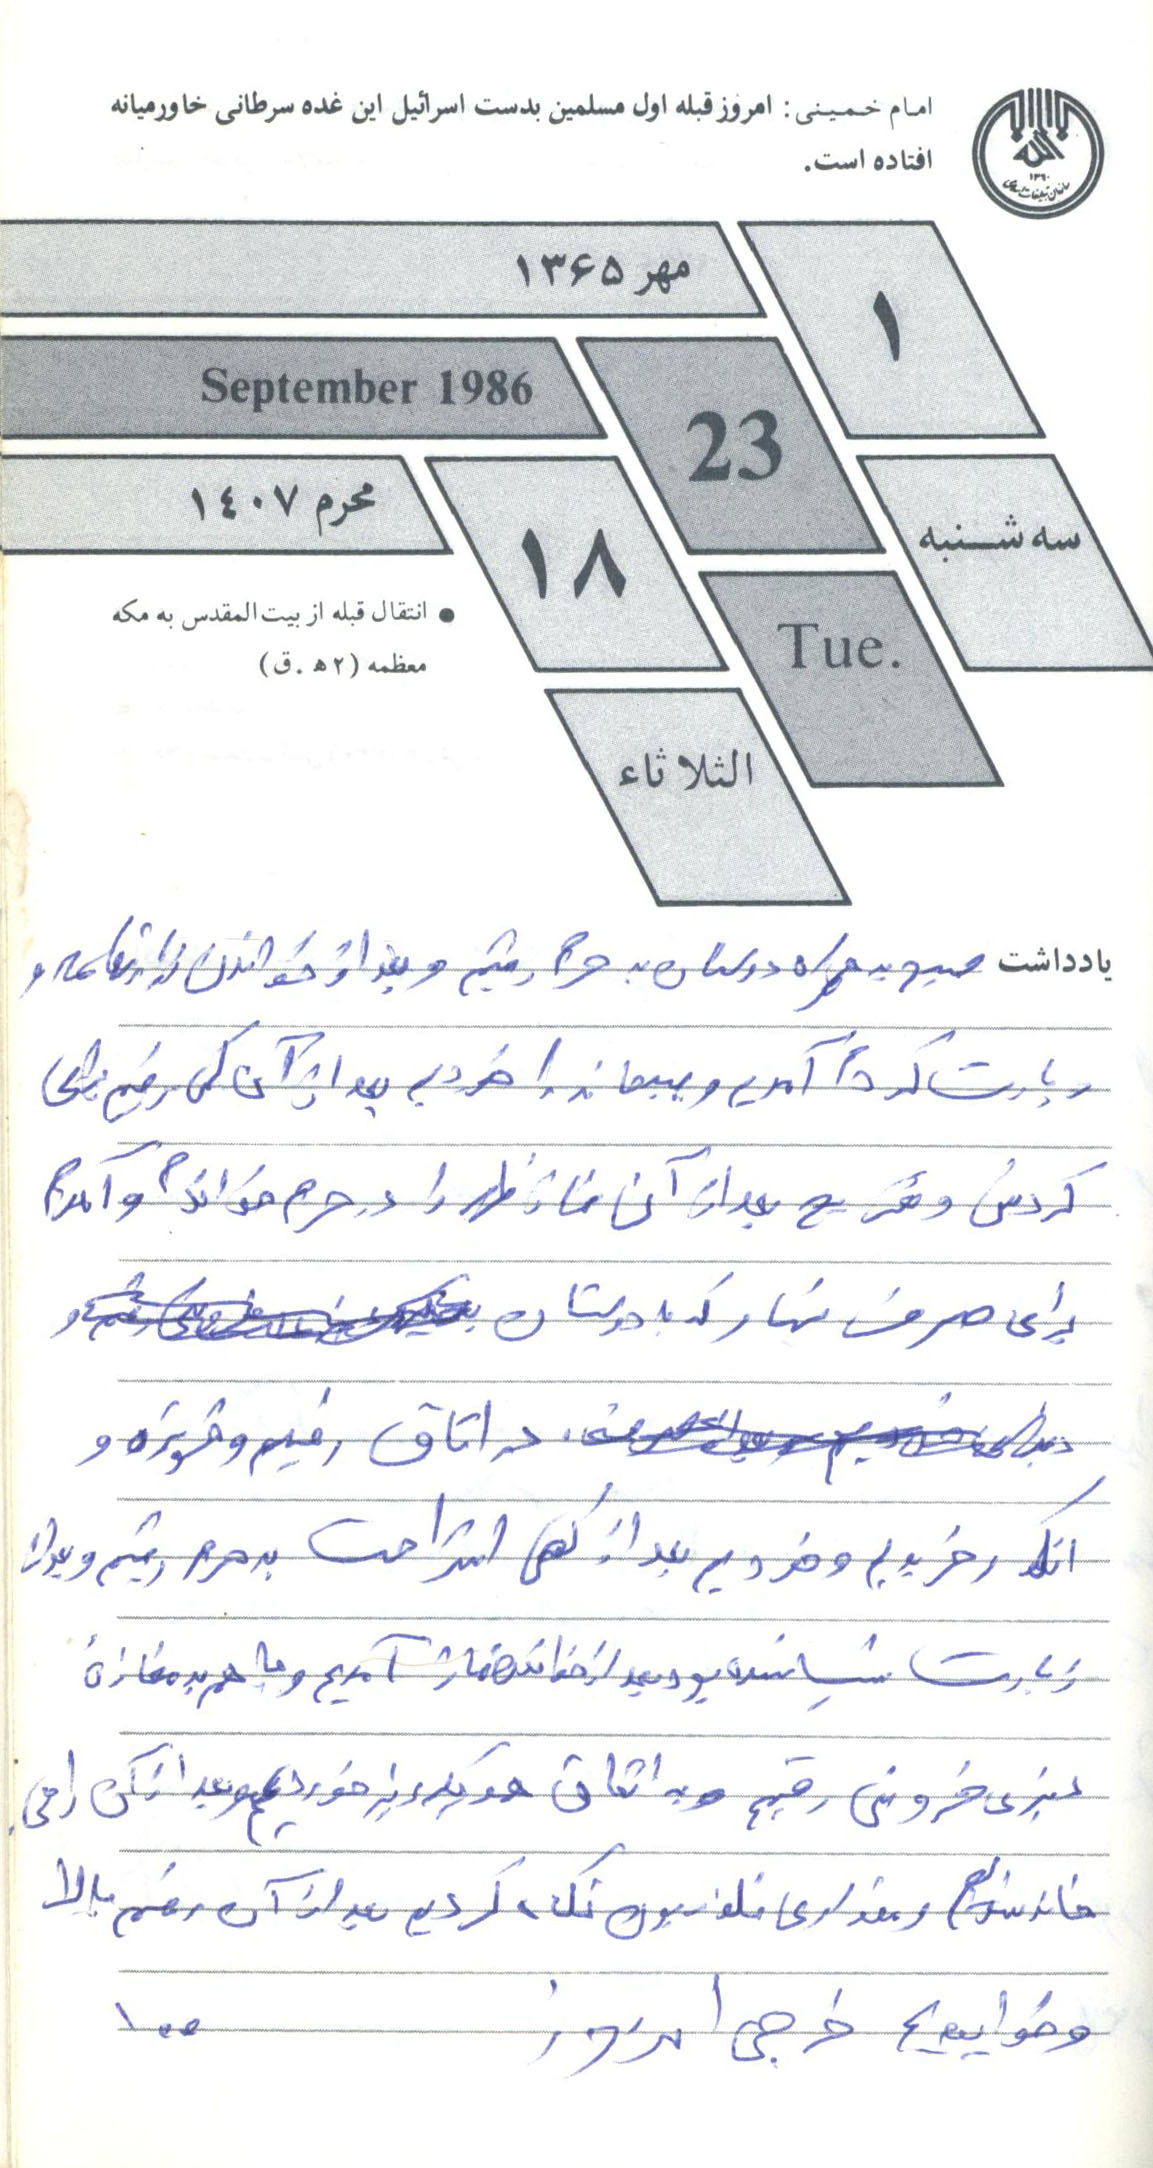 امام خمینی: امروز قبله اول مسلمین بدست اسرائیل این غده سرطانی خاورمیانه
افتاده است.
۱۳۶۰
سازمان تبلیغات اسلامی
۱
مهر ۱۳۶۵
23
September 1986
سه شنبه
۱۸
محرم ۱٤۰۷
Tue.
● انتقال قبله از بیت‌المقدس به مکه
معظمه (۲ ه‍ .ق)
الثلاثاء
یادداشت صبح به همراه دوستان به حرم رفتیم و بعد از خواندن و
زیارت کرده آمدیم و صبحانه را خوردیم بعد از آن کمی رفتیم برای
گردش و تفریح بعد از آن نماز ظهر را در حرم خوانده و آمدم
برای صرف نهار که با دوستان و
در اتاق رفتیم و خربزه و
انگور خریدیم و خوردیم بعد از کمی استراحت به حرم رفتیم و بعد از
زیارت شب شده بود بعد از خواندن نماز آمدیم و با هم به مغازه
رفتیم و به اتفاق خوردیم و بعد از آن راهی
خانه شدیم و مقداری تلفزیون نگاه کردیم بعد از آن رفتیم بالا
و خوابیدیم خرجی امروز ۱۰۰